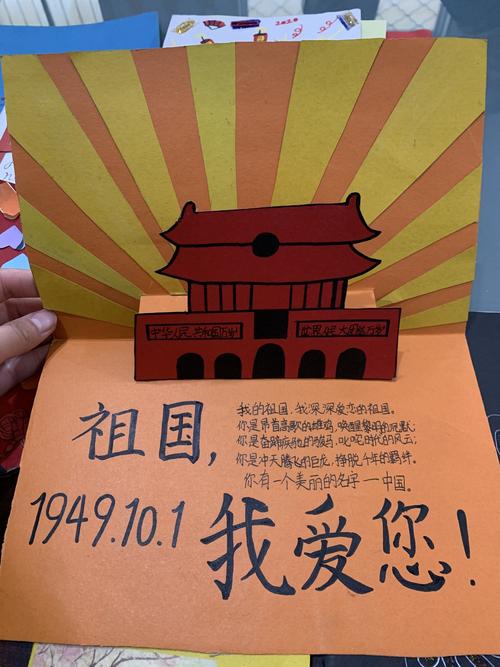 2020
中华人民共和国万岁
世界人民大团结万岁
祖国，
我的祖国，我深深爱恋的祖国。
你是昂首高歌的雄鸡，唤醒黎明的沉默；
你是奋蹄疾驰的骏马，叱咤时代的风云；
你是冲天腾飞的巨龙，挣脱千年的羁绊。
你有一个美丽的名字一中国。
1949.10.1
我爱您！